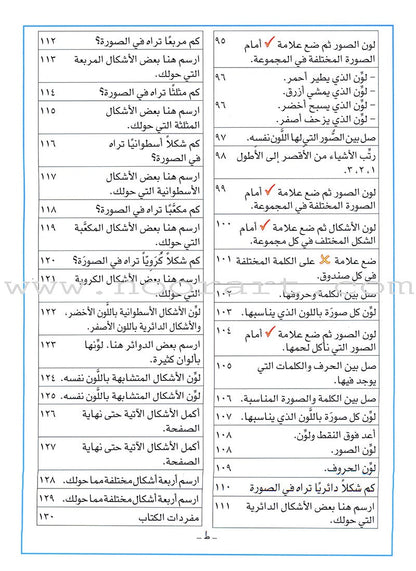 لون الصور ثم ضع علامة ✓ أمام ٩٥
الصورة المختلفة في المجموعة.
– لوِّن الذي يطير أحمر. ٩٦
– لوِّن الذي يمشي أزرق.
– لوِّن الذي يسبح أخضر. ٩٦
– لوِّن الذي يزحف أصفر.
صل بين الصُّور التي لها اللَّون نفسه. ٩٧
رتِّب الأشياء من الأقصر إلى الأطول ٩٨
١، ٢، ٣.
لون الصور ثم ضع علامة ✓ أمام ٩٩
الصورة المختلفة في المجموعة.
لون الأشكال ثم ضع علامة ✓ أمام ١٠٠
الشكل المختلف في كل مجموعة.
ضع علامة ✗ على الكلمة المختلفة ١٠١
في كل صندوق.
صل بين الكلمة وحروفها. ١٠٢
لوِّن كل صورة باللَّون الذي يناسبها. ١٠٣
لون الصور ثم ضع علامة ✓ أمام ١٠٤
الصور التي نأكل لحمها.
صل بين الحرف والكلمات التي ١٠٥
يوجد فيها.
صل بين الكلمة والصورة المناسبة. ١٠٦
لوِّن كل صورة باللَّون الذي يناسبها. ١٠٧
أعد فوق النقط ولوِّن. ١٠٨
لوِّن الصور. ١٠٨
لوِّن الحروف. ١٠٩
كم شكلاً دائريًا تراه في الصورة ١١٠
ارسم هنا بعض الأشكال الدائرية ١١١
التي حولك.
كم مربعًا تراه في الصورة؟ ١١٢
ارسم هنا بعض الأشكال المربعة ١١٣
التي حولك.
كم مثلثًا تراه في الصورة؟ ١١٤
ارسم هنا بعض الأشكال ١١٥
المثلثة التي حولك.
كم شكلاً أسطوانيًا تراه ١١٦
في الصورة؟
ارسم هنا بعض الأشكال ١١٧
الأسطوانية التي حولك.
كم مكعَّبًا تراه في الصورة؟ ١١٨
ارسم هنا بعض الأشكال المكعَّبة ١١٩
التي حولك.
كم شكلاً كُرَويًّا تراه في الصورَة؟ ١٢٠
ارسم هنا بعض الأشكال الكروية ١٢١
التي حولك.
لوِّن الأشكال الأسطوانية باللَّون الأخضر، ١٢٢
والأشكال الدائرية باللَّون الأصفر.
ارسم بعض الدوائر هنا. لوِّنها ١٢٣
بألوان كثيرة.
لوِّن الأشكال المتشابهة باللَّون نفسه. ١٢٤
لوِّن الأشكال المتشابهة باللَّون نفسه. ١٢٥
أكمل الأشكال الآتية حتى نهاية ١٢٦
الصفحة.
أكمل الأشكال الآتية حتى نهاية ١٢٧
الصفحة.
ارسم أربعة أشكال مختلفة مما حولك. ١٢٨
ارسم أربعة أشكال مختلفة مما حولك. ١٢٩
مفردات الكتاب ١٣٠
– ط –